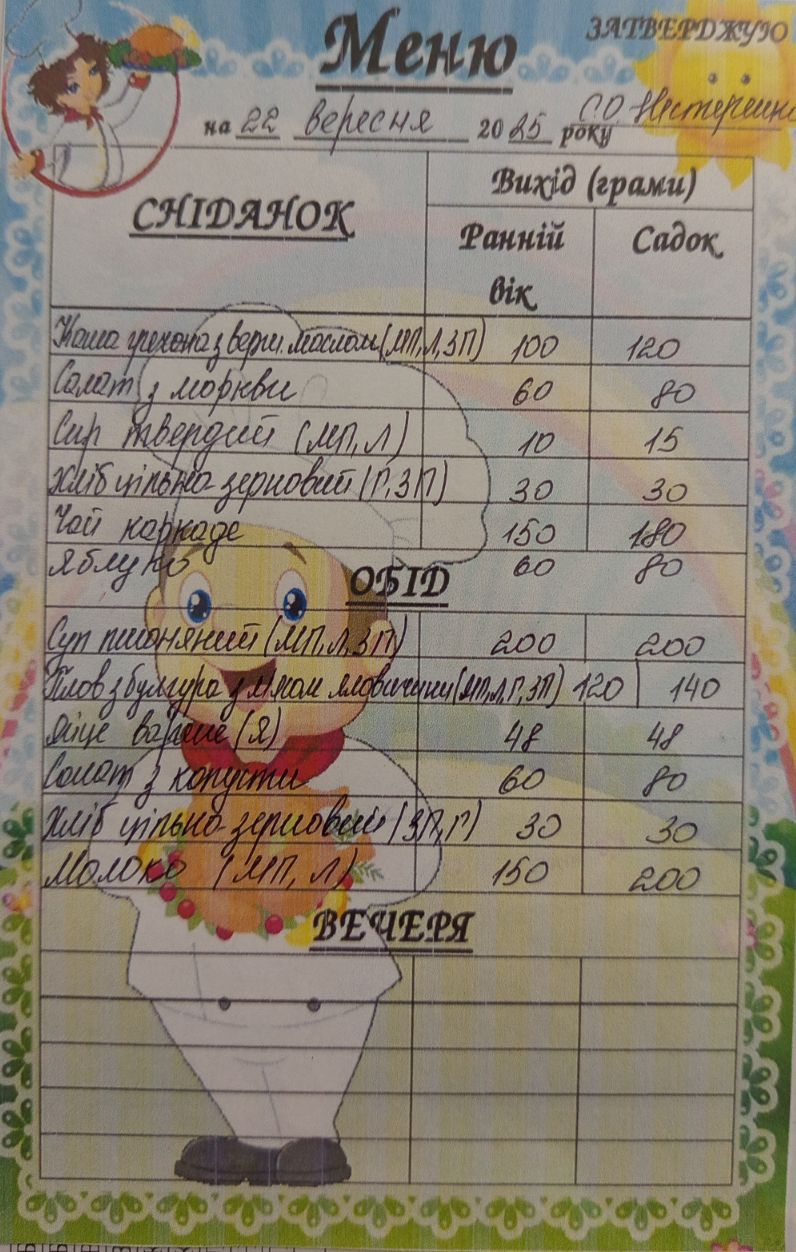 Меню
ЗАТВЕРДЖУЮ
на 22 вересня 2025 року
С.О.
СНІДАНОК
Вихід (грами)
Ранній вік
Садок
Каша гречана з верш. маслом (МП, Л, ЗП) 100 120
Салат з моркви 60 80
Сир твердий (МП, Л) 10 15
Хліб цільно-зерновий (Г, ЗП) 30 30
Чай каркаде 150 180
Яблуко 60 80
ОБІД
Суп пшоняний (МП, Л, ЗП) 200 200
Плов з булгура з м'ясом яловичини (МП, Л, Г, ЗП) 120 140
Яйце варене (Я) 48 48
Салат з капусти 60 80
Хліб цільно-зерновий (ЗП, Г) 30 30
Молоко (МП, Л) 150 200
ВЕЧЕРЯ